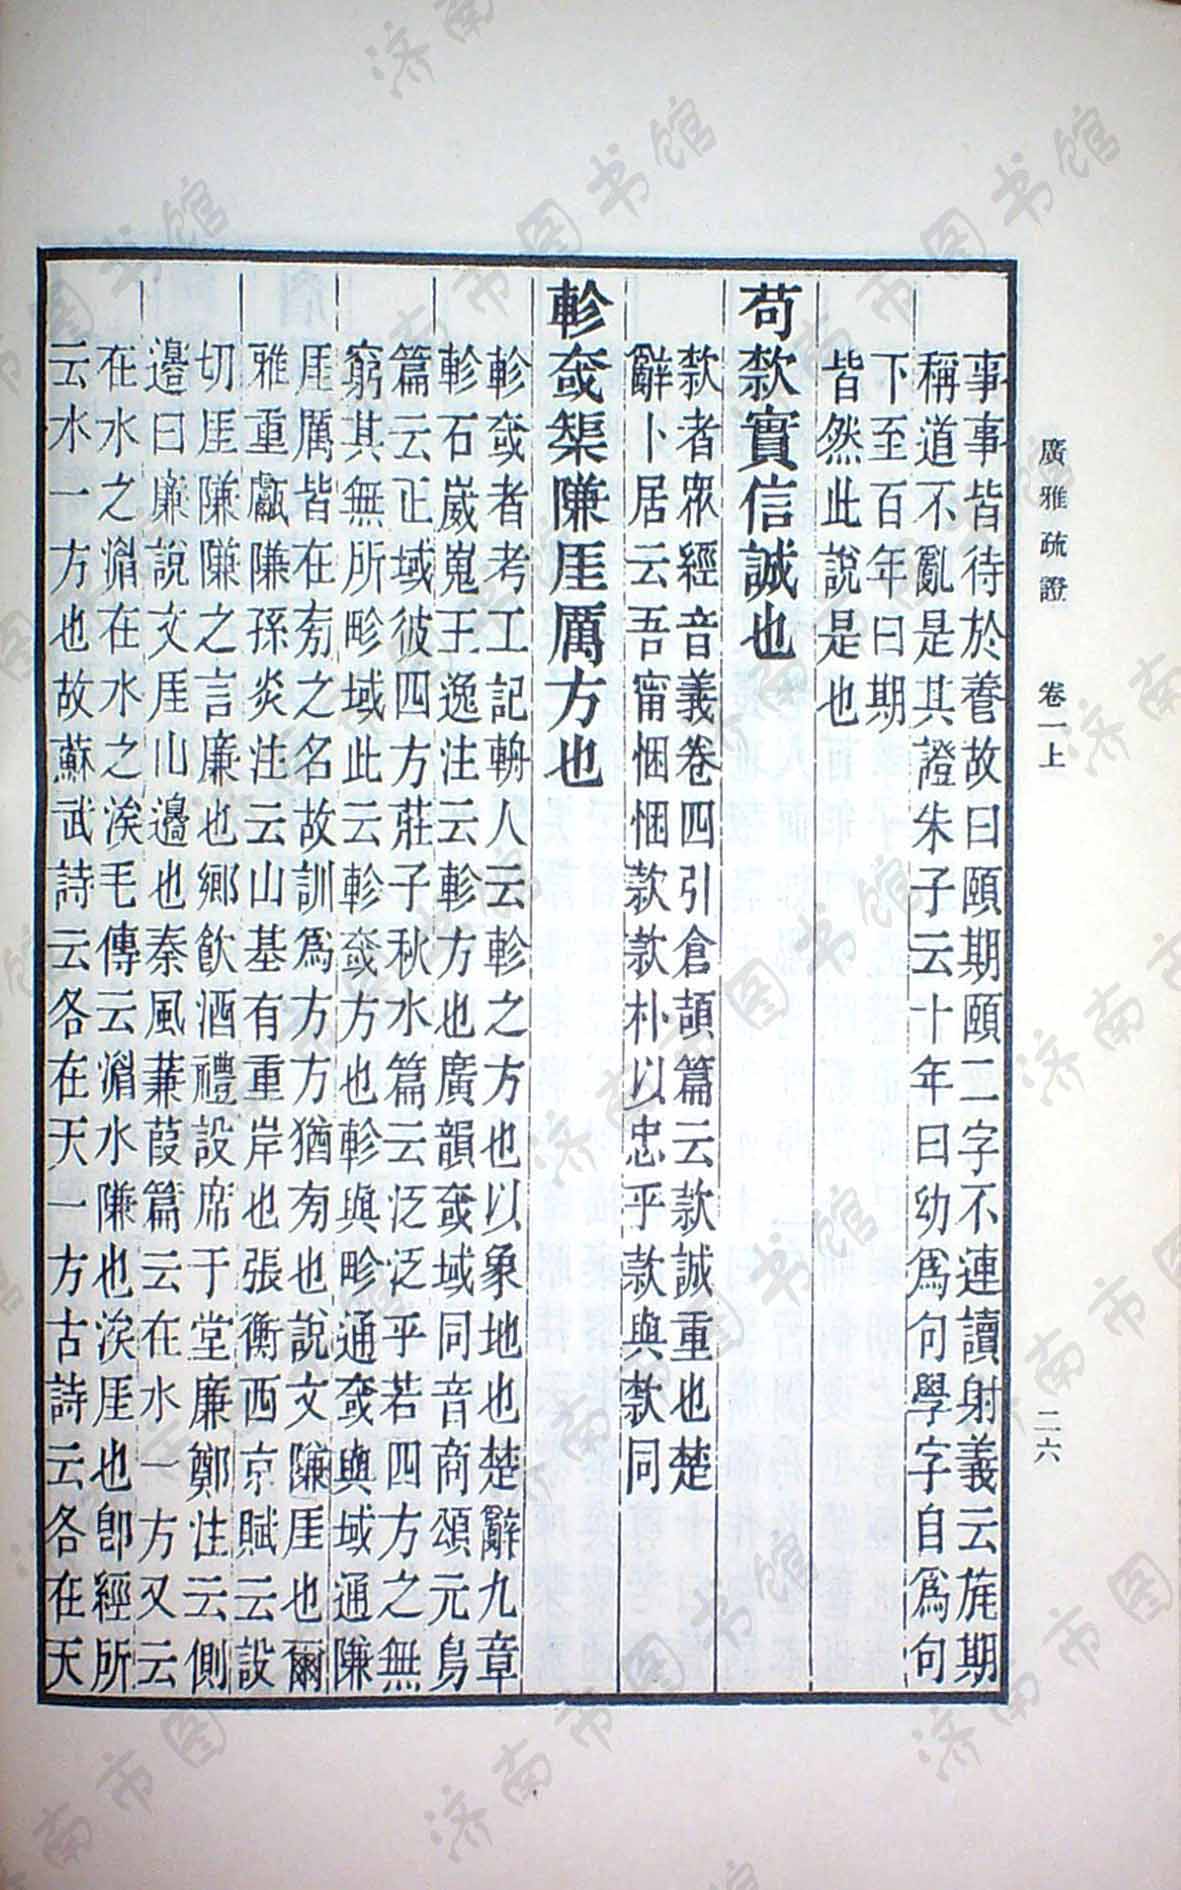 廣雅疏證 卷一上 二六
事事皆待於養故曰頤期頤二字不連讀射義云旄期
稱道不亂是其證朱子云十年曰幼爲句學字自爲句
下至百年曰期
皆然此說是也
苟欵實信誠也
欵者眾經音義卷四引倉頡篇云款誠重也楚
辭卜居云吾甯悃悃款款朴以忠乎款與欵同
軫㚜榘隒厓厲方也
軫㚜者考工記輈人云軫之方也以象地也楚辭九章
軫石崴嵬王逸注云軫方也廣韻㚜域同音商頌元鳥
篇云正域彼四方莊子秋水篇云泛泛乎若四方之無
窮其無所畛域此云軫㚜方也軫與畛通㚜與域通隒
厓厲皆在㫄之名故訓爲方方猶㫄也說文隒厓也爾
雅重甗隒孫炎注云山基有重岸也張衡西京賦云設
切厓隒隒之言廉也鄉飲酒禮設席于堂廉鄭注云側
邊曰廉說文厓山邊也秦風蒹葭篇云在水一方又云
在水之湄在水之涘毛傳云湄水隒也涘厓也卽經所
云水一方也故蘇武詩云各在天一方古詩云各在天